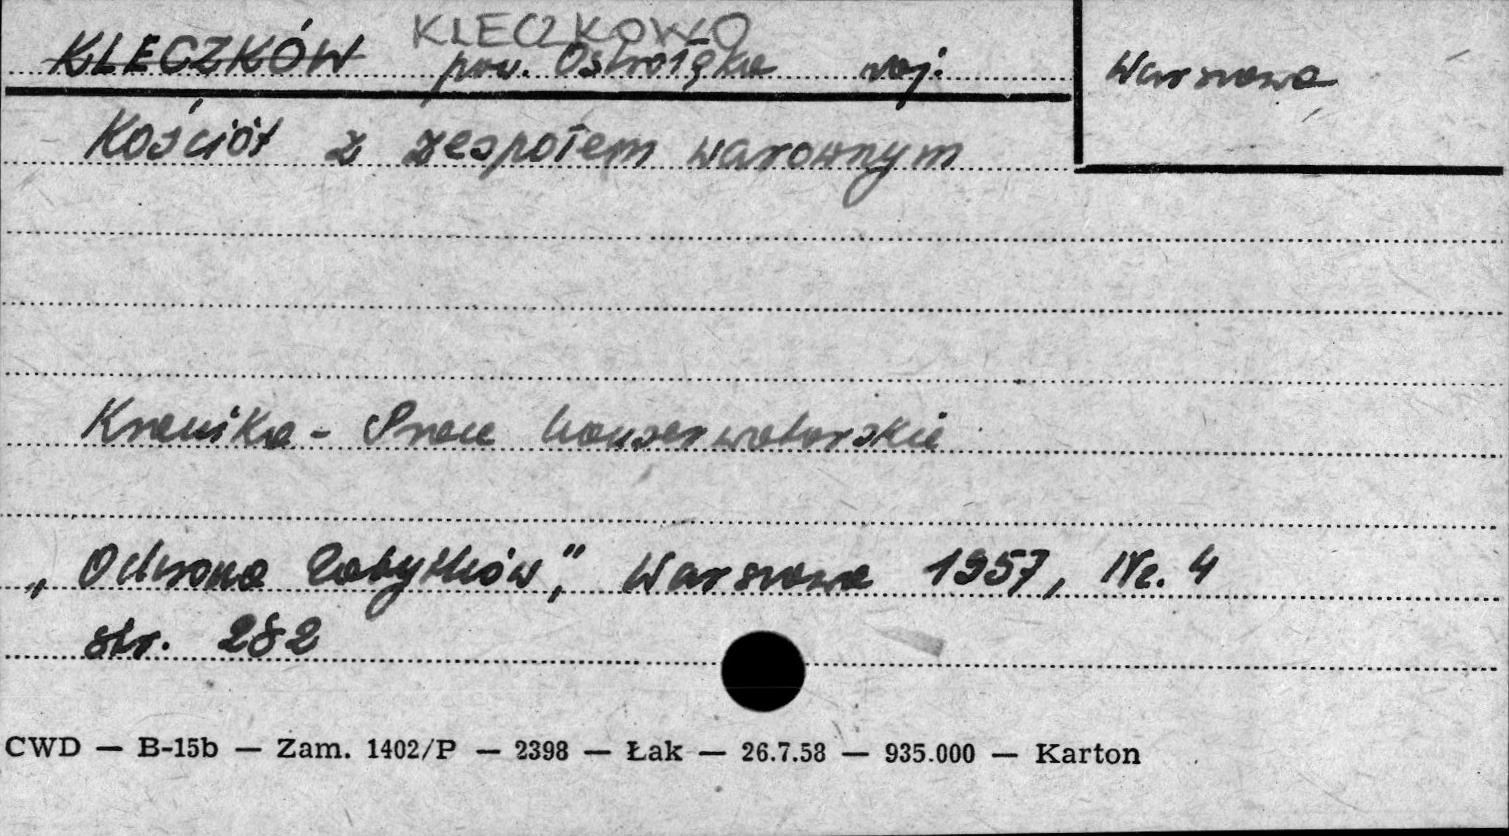 KLECZKOWO
KLECZKÓW pow. Ostrołęka woj. Warszawa
Kościół z zespołem warownym
Kronika - Prace konserwatorskie
„Ochrona Zabytków”, Warszawa 1957, Nr. 4
str. 282
CWD — B-15b — Zam. 1402/P — 2398 — Łak — 26.7.58 — 935.000 — Karton